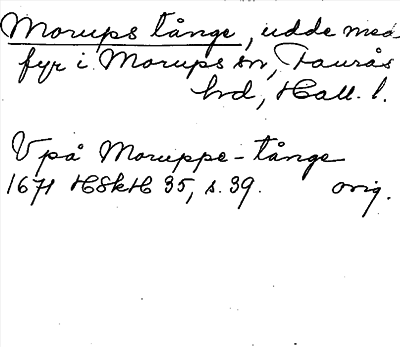 Morups tånge, udde med
fyr i Morups sn, Faurås
hd, Hall. l.
Vpå Moruppe-tånge
1671 HSkH 35, s. 39. orig.